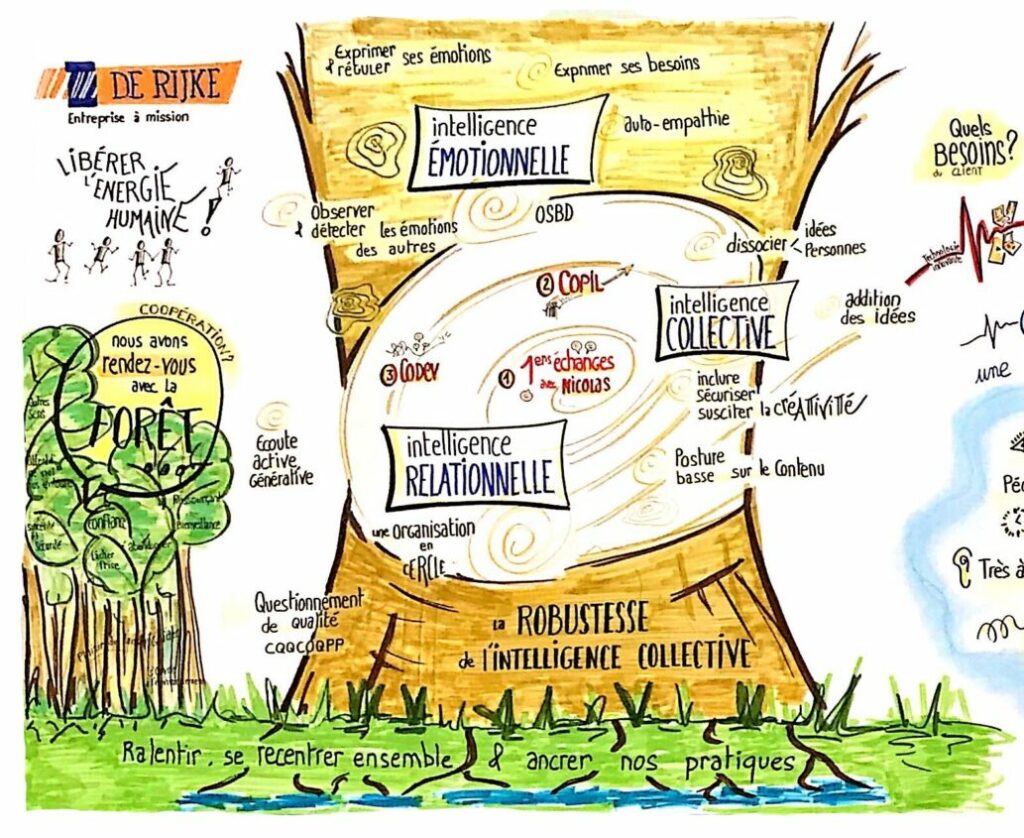 DE RIJKE
Entreprise à mission
LIBÉRER
L'ÉNERGIE
HUMAINE !
COOPÉRATION?
nous avons
rendez-vous
avec la
FORÊT
confiance
Lâcher
prise
bienveillance
Exprimer
& réguler ses émotions
Exprimer ses besoins
auto-empathie
intelligence
ÉMOTIONNELLE
Observer
& détecter les émotions
des autres
OSBD
dissocier < idées
Personnes
② COPIL
intelligence
COLLECTIVE
addition
des idées
③ CODEV
① 1ers échanges
avec NICOLAS
inclure
Sécuriser
susciter la CRÉATIVITÉ
Ecoute
active
Générative
intelligence
RELATIONNELLE
Posture
basse sur le contenu
une Organisation
en
CERCLE...
Questionnement
de qualité
CQQCOQPP
La ROBUSTESSE
de l'INTELLIGENCE COLLECTIVE
Ralentir, se recentrer ensemble & ancrer nos pratiques
Quels
BESOINS?
du client
une
Très à